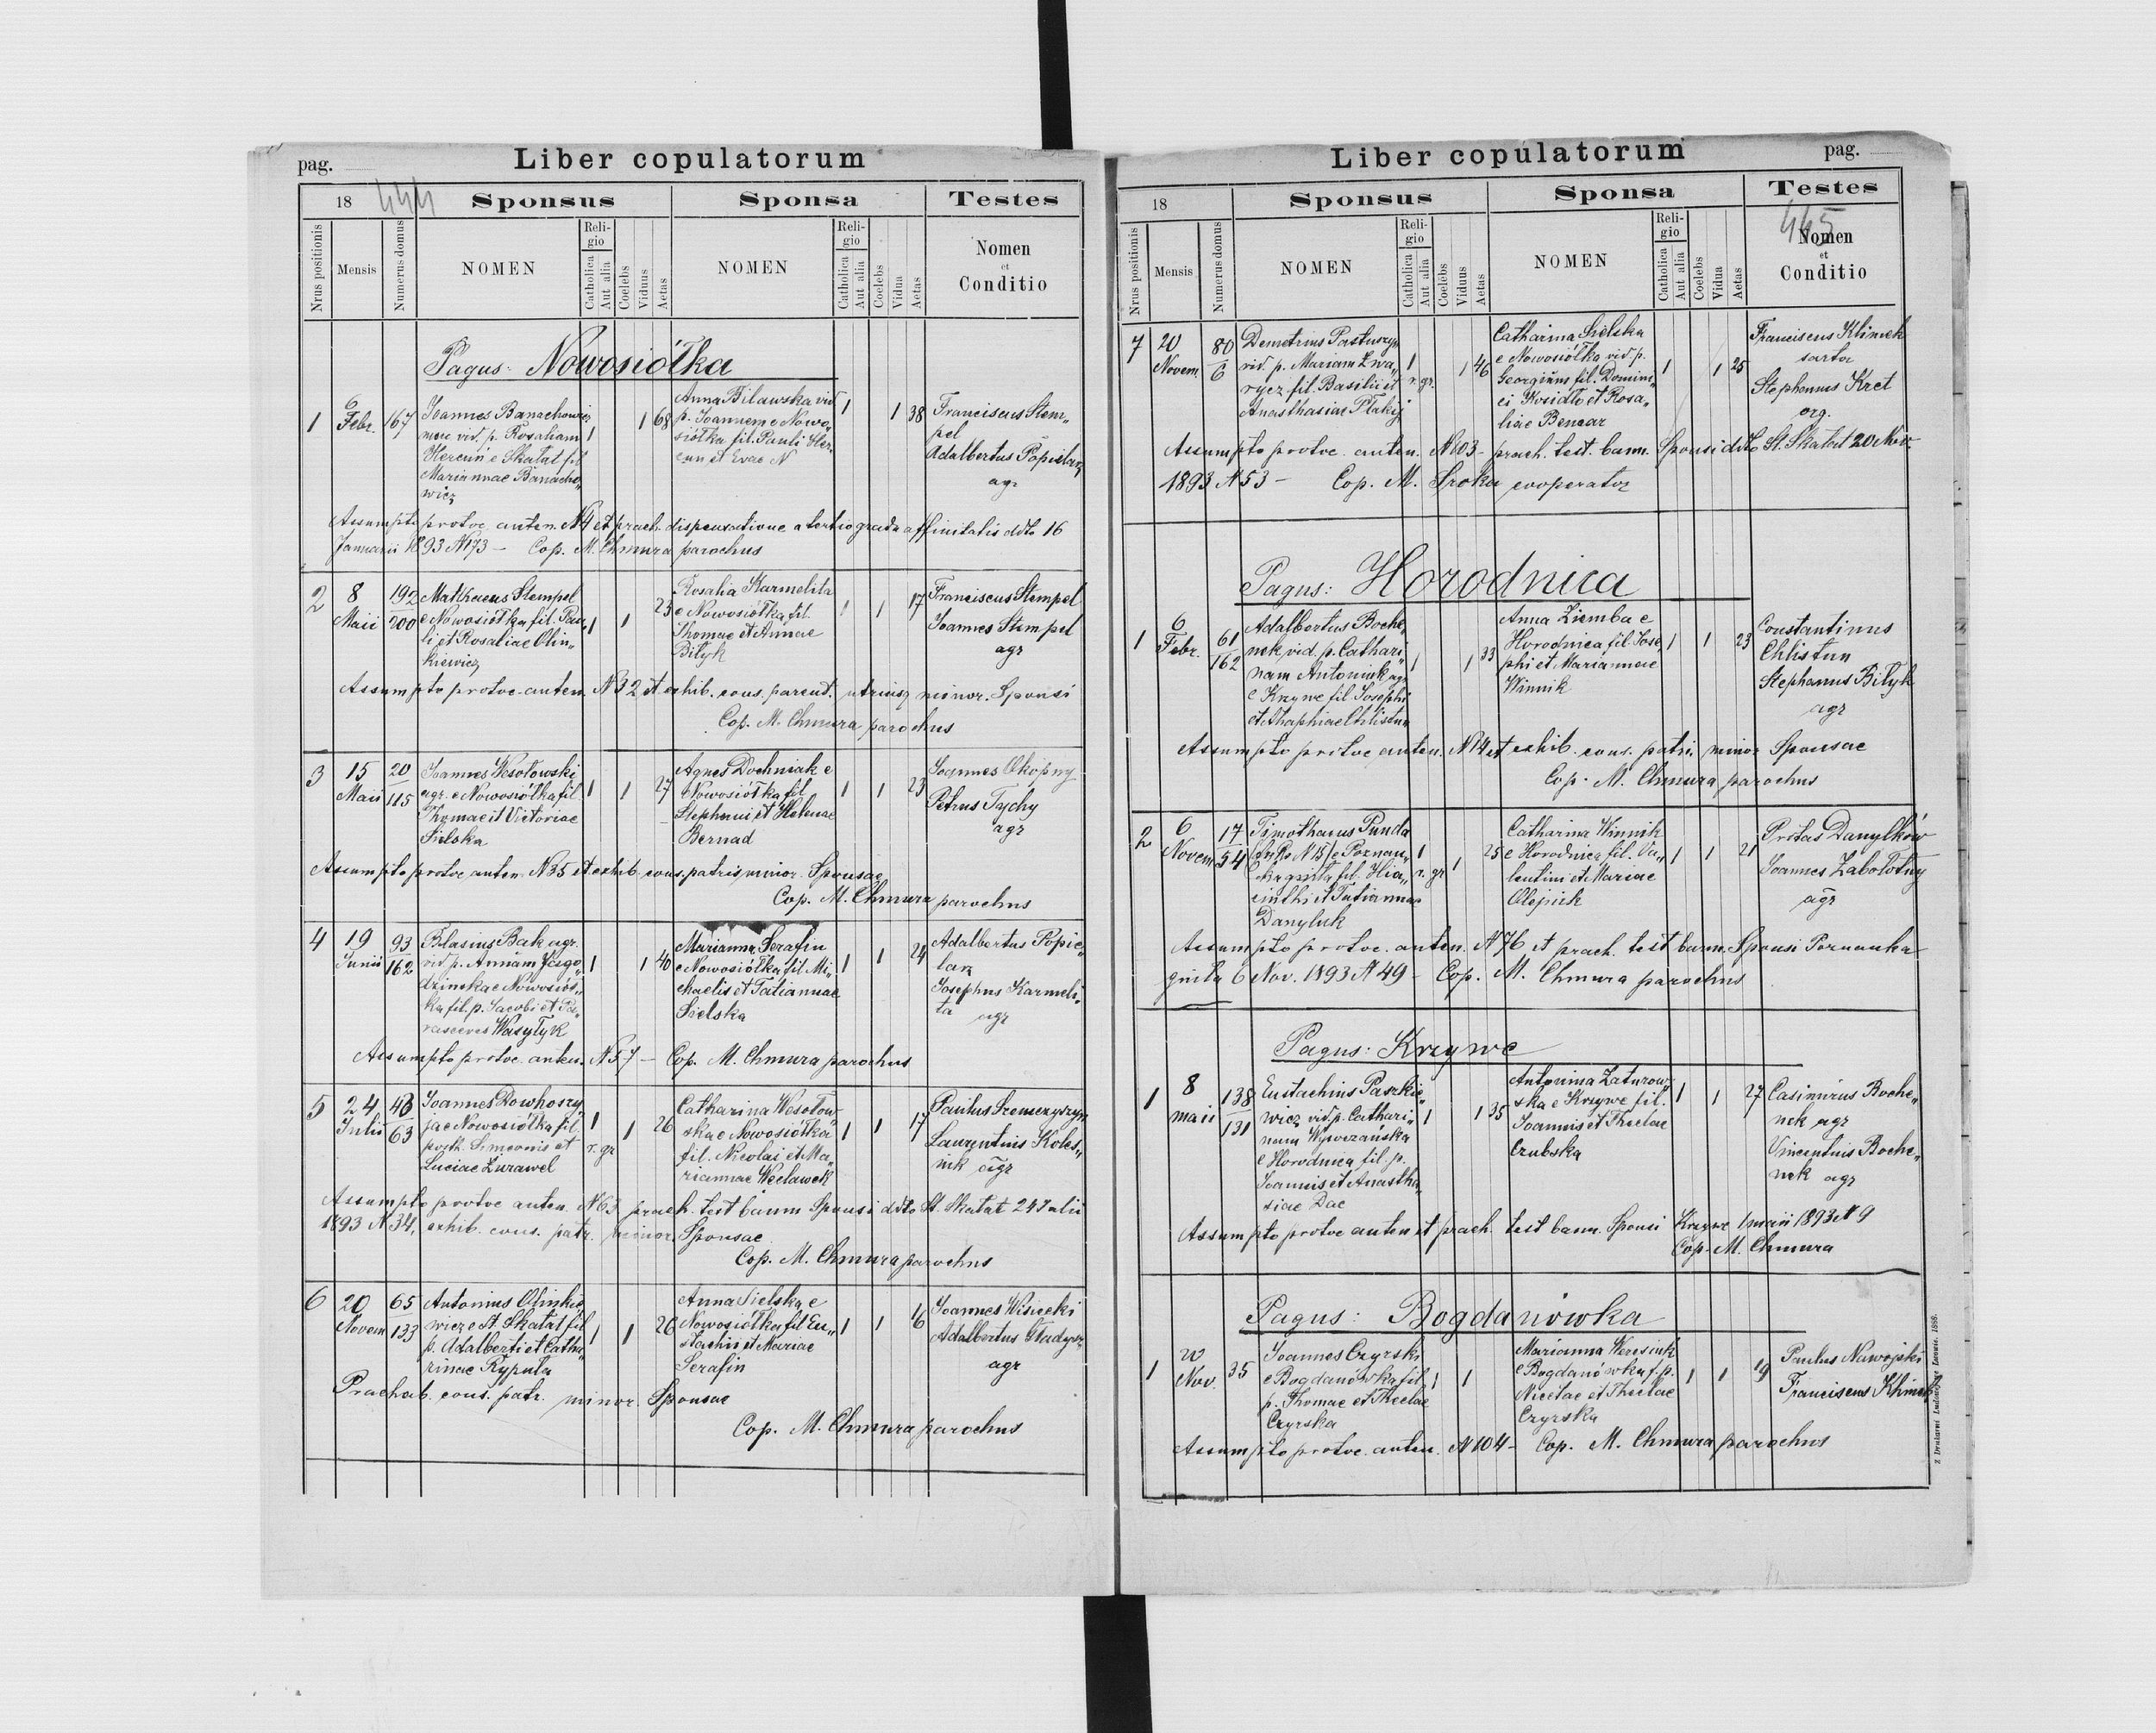 pag.
Liber copulatorum
18
444
Sponsus
Sponsa
Testes
Nrus positionis
Mensis
Numerus domus
NOMEN
Reli-
gio
Catholica
Aut alia
Coelebs
Viduus
Aetas
NOMEN
Reli-
gio
Catholica
Aut alia
Coelebs
Vidua
Aetas
Nomen
et
Conditio
Pagus: Nowosiółka
1
6
Febr.
167
Joannes Banachowicz
vid. p. Rosaliam
Hercuń e Skałat fil
Mariannae Banacho„
wicz
1
1
68
Anna Bilawska vid
p. Joannem e Nowo„
siółka fil. Pauli
et Evae N
1
1
38
Franciscus Stem„
pel
Adalbertus Popielarz
agr
Assumpto protoc. anten. N4 et praeh. dispensatione a tertio gradu affinitatis ddto 16
Januarii 1893 N173 – Cop. M. Chmura parochus
2
8
Maii
192
200
Mathaeus Stempel
e Nowosiółka fil. Pau„
li et Rosaliae Olin„
kiewicz
1
1
23
Rosalia Karmelita
e Nowosiółka fil.
Thomae et Annae
Bilyk
1
1
17
Franciscus Stempel
Joannes Stempel
agr
Assumpto protoc. anten. N32 et exhib. cons. parent. utriusq minor. Sponsi
Cop. M. Chmura parochus
3
15
Maii
20
115
Joannes Wesołowski
agr. e Nowosiółka fil.
Thomae et Victoriae
Sielska
1
1
27
Agnes Dochniak e
Nowosiółka fil
Stephani et Helenae
Bernad
1
1
23
Joannes Okopny
Petrus Tychy
agr
Assumpto protoc anten N35 et exhib. cons. patris minor. Sponsae
Cop. M. Chmura parochus
4
19
Junii
93
162
Blasius Bak agr.
vid p. Annam Jago„
dzinska e Nowosioł„
ka fil. p. Jacobi et Pa„
rasceves Wasyłyk
1
1
40
Marianna Serafin
e Nowosiółka fil. Mi„
chaelis et Tatiannae
Sielska
1
1
24
Adalbertus Popie„
larz
Josephus Karmeli„
ta
agr
Assumpto protoc. anten. N57 – Cop. M. Chmura parochus
5
24
Julii
48
63
Joannes Dowhoszy
ja e Nowosiółka fil.
posth. Simeonis et
Luciae Żurawel
1
r. gr
1
26
Catharina Wesołow
ska e Nowosiółka
fil. Nicolai et Ma„
riannae Wecławek
1
1
17
Paulus Szewczyszyn
Laurentius Koles„
nik agr
Assumpto protoc anten. N63 praeh. test bann Sponsi ddto St. Skałat 24 Julii
1893 N34, exhib. cons. patr. minor. Sponsae
Cop. M. Chmura parochus
6
20
Novem
65
133
Antonius Olinkie
wicz e St. Skałat fil
p. Adalberti et Catha„
rinae Ryputa
1
1
26
Anna Sielska e
Nowosiółka fil Eu„
stachii et Mariae
Serafin
1
1
16
Joannes Wisiecki
Adalbertus Gładysz
agr
Praehab. cons. patr. minor. Sponsae
Cop. M. Chmura parochus
Liber copulatorum
pag.
18
Sponsus
Sponsa
Testes
445
Nrus positionis
Mensis
Numerus domus
NOMEN
Reli-
gio
Catholica
Aut alia
Coelebs
Viduus
Aetas
NOMEN
Reli-
gio
Catholica
Aut alia
Coelebs
Vidua
Aetas
Nomen
et
Conditio
7
20
Novem.
80
6
Demetrius Pastuszyn
vid. p. Mariam Zwa„
rycz fil. Basilii et
Anasthasiae Ptakij
1
r. gr.
1
46
Catharina Sielska
e Nowosiółka vid. p.
Georgium fil. Domini„
ci Kosidło et Rosa„
liae Benaar
1
1
25
Franciscus Klimek
sartor
Stephanus Kret
org.
Assumpto protoc. anten. N103 – praeh. test. bann. Sponsi ddto St. Skałat 20 Nov.
1893 N53 – Cop. M. Sroka cooperator
Pagus: Horodnica
1
6
Febr.
61
162
Adalbertus Boche„
nek vid. p. Cathari„
nam Antoniuk agr
e Krzywe fil Josephi
et Agaphiae Chlistun
1
1
33
Anna Ziemba e
Horodnica fil. Jose
phi et Mariannae
Winnik
1
1
23
Constantinus
Chlistun
Stephanus Bilyk
agr
Assumpto protoc anten. N14 et exhib. cons. patri. minor Sponsae
Cop. M. Chmura parochus
2
6
Novem
17
54
Timothaeus Punda
e Poznan„
fil. Hia„
cinthi et Tatiannae
Danyluk
1
r. gr
1
25
Catharina Winnik
e Horodnica fil. Va„
lentini et Mariae
Olejnik
1
1
21
Protas Danylków
Joannes Zabołotny
agr
Assumpto protoc. anten. N76 et praeh. test bann. Sponsi Poznanka
gniła 6 Nov. 1893 N49 – Cop. M. Chmura parochus
Pagus: Krzywe
1
8
maii
138
131
Eustachius Paszkie„
wicz vid p. Cathari„
nam Wywrzańska
e Horodnica fil p.
Joannis et Anastha„
siae Dac
1
1
35
Antonina Zaturow
ska e Krzywe fil.
Joannis et Theclae
Czubska
1
1
27
Casimirus Boche„
nek agr
Vincentius Boche„
nek agr
Assumpto protoc anten et praeh. test bann. Sponsi Krzywe 1 maii 1893 N9
Cop. M. Chmura
Pagus: Bogdanówka
1
20
Nov.
35
Joannes Czyrski
e Bogdanówka fil.
p. Thomae et Theclae
Czyrska
1
1
Marianna Weresiuk
e Bogdanówka f. p.
Nicetae et Theclae
Czyrska
1
1
19
Paulus Nawojski
Franciscus Klimek
Assumpto protoc. anten. N104 – Cop. M. Chmura parochus
Z Drukarni Ludowej we Lwowie. 1888.